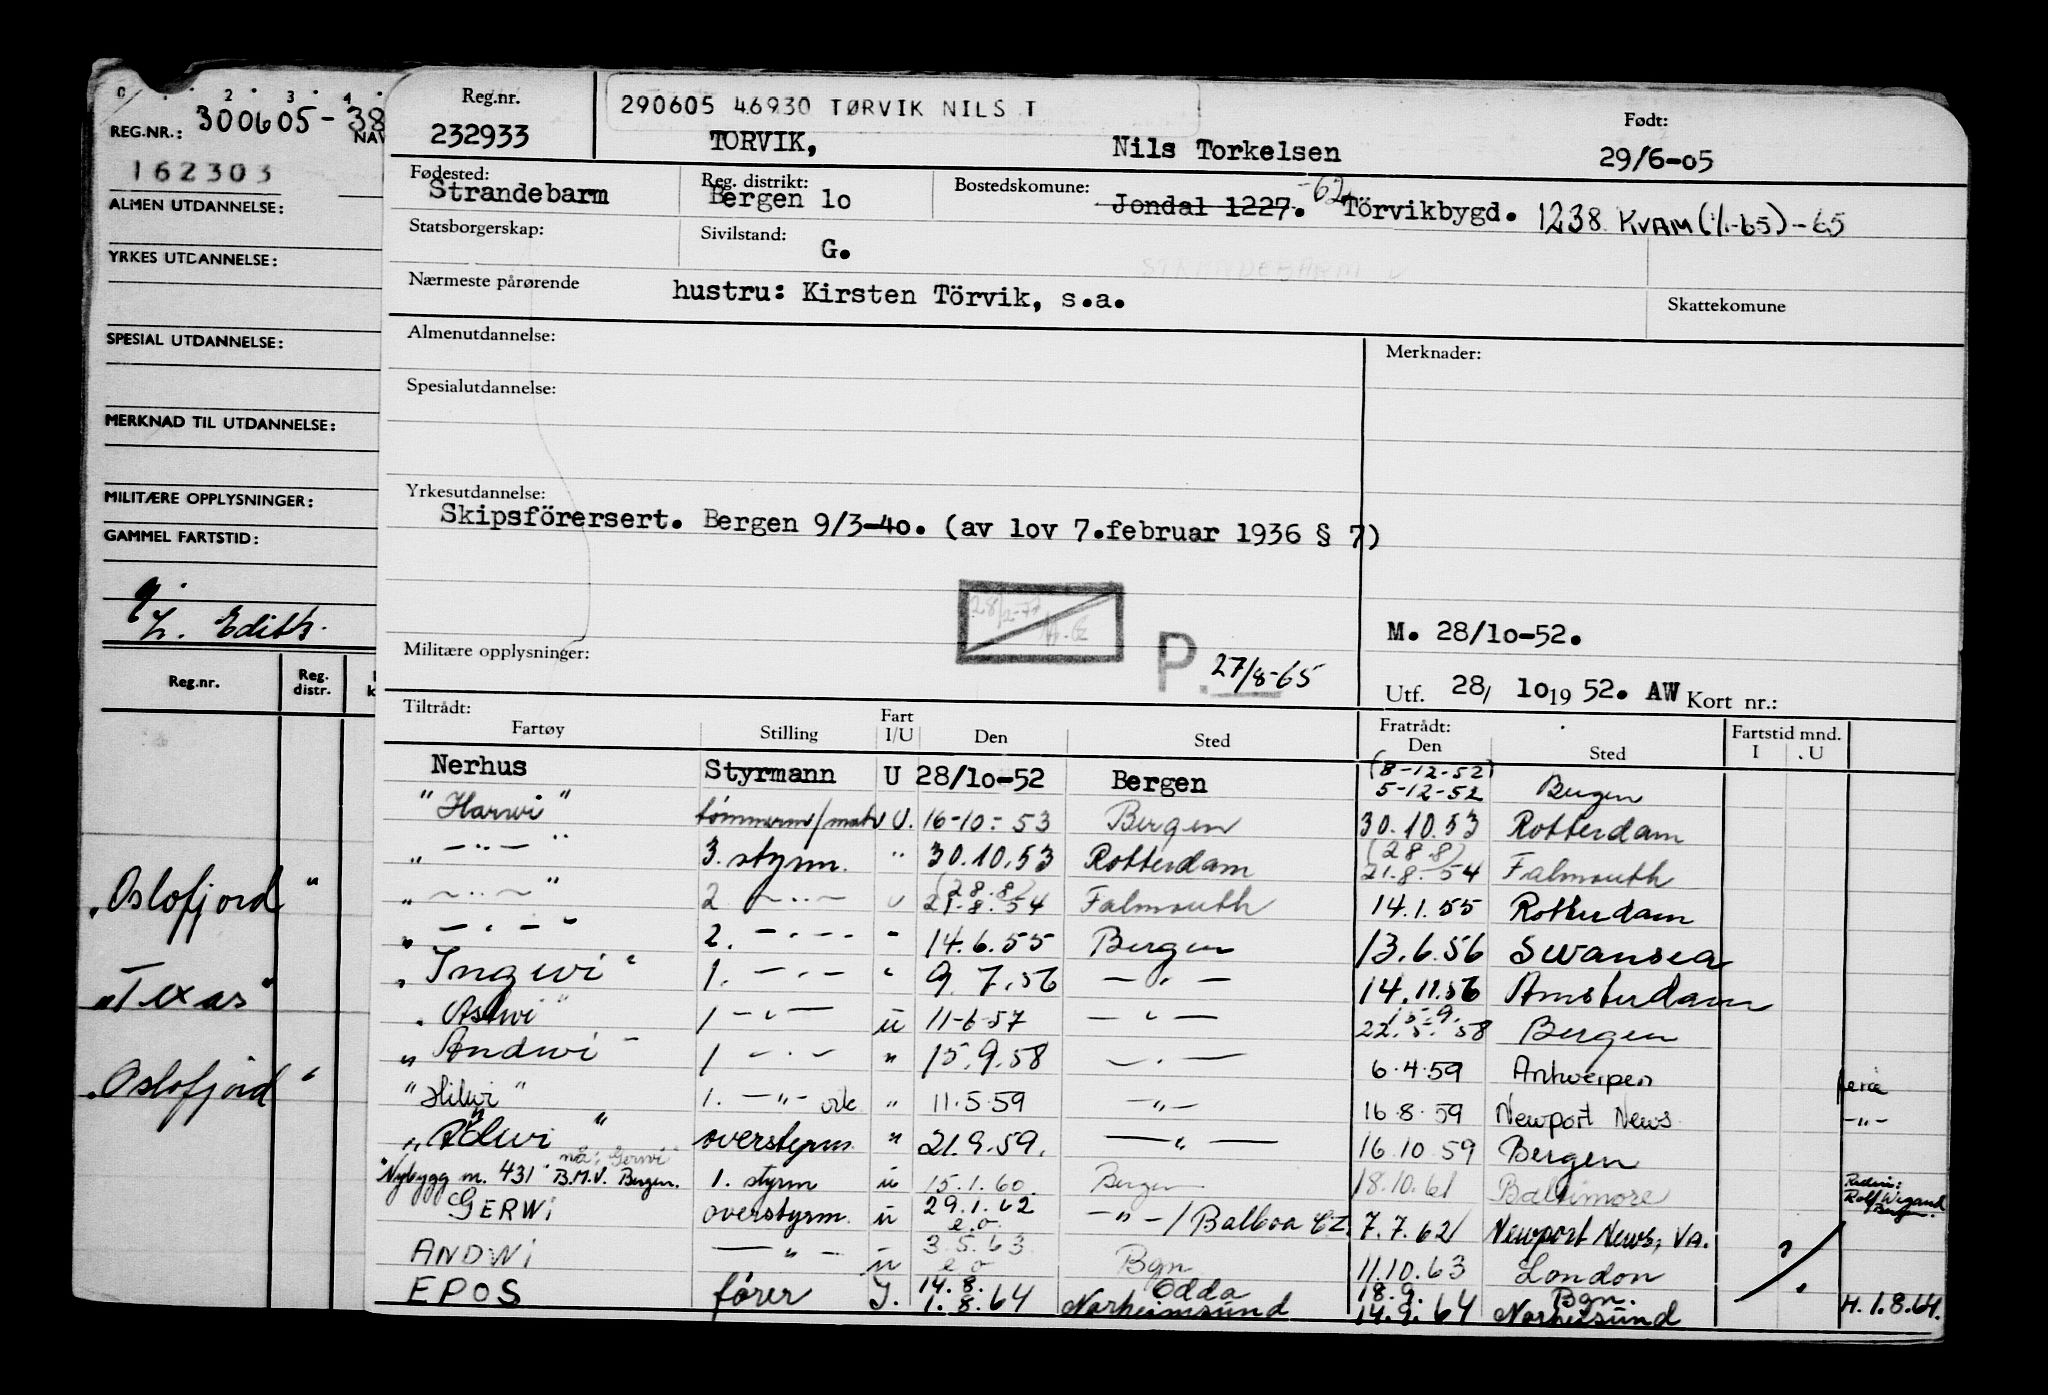 0 · 2 · 3 · 4 ·
REG.NR.: 300605-38
NAV
162303
ALMEN UTDANNELSE:
YRKES UTDANNELSE:
SPESIAL UTDANNELSE:
MERKNAD TIL UTDANNELSE:
MILITÆRE OPPLYSNINGER:
GAMMEL FARTSTID:
Edith.
Reg.nr. Reg. distr. k
"Oslofjord"
"Texas"
"Oslofjord"
Reg.nr.
232933
290605 46930 TØRVIK NILS T
TORVIK, Nils Torkelsen
Født:
29/6-05
Fødested: Strandebarm
Reg. distrikt: Bergen 1o
Bostedskomune: Jondal 1227. -62 Törvikbygd. 1238 KVAM (1/1-65)-65
Statsborgerskap:
Sivilstand: G.
STRANDEBARM
Nærmeste pårørende hustru: Kirsten Törvik, s.a.
Skattekomune
Almenutdannelse:
Merknader:
Spesialutdannelse:
Yrkesutdannelse:
Skipsförersert. Bergen 9/3-4o. (av lov 7.februar 1936 § 7)
M. 28/1o-52.
Militære opplysninger:
P. 27/8-65
Utf. 28/ 1o 19 52. AW Kort nr.:
Tiltrådt: Fartøy Stilling Fart I/U Den Sted Fratrådt: Den Sted Fartstid mnd. I . U
Nerhus Styrmann U 28/1o-52 Bergen (8-12-52) 5-12-52 Bergen
"Harwi" tømmerm/matr U. 16-10-53 Bergen 30.10.53 Rotterdam
" -"- " 3. styrm. " 30.10.53 Rotterdam (28.8) 21.8.-54 Falmouth
" -"- " 2 -"- U (28.8) 21.8.54 Falmouth 14.1.55 Rotterdam
" -"- " 2. -"- " 14.6.55 Bergen 13.6.56 Swansea
"Ingwi" 1. -"- " 9.7.56 -"- 14.11.56 Amsterdam
"Askwi" 1 -"- ü 11-6-57 -"- 15.9. 22.5.58 Bergen
"Andwi" 1 -"- " 15.9.58 -"- 6.4.59 Antwerpen
"Hilwi" 1. -"- " 11.5.59 -"- 16.8.59 Newport News ferie
overstyrm. " 21.9.59. -"- 16.10.59 Bergen -"-
nå: "Gerwi"
"Nybygg nr. 431" B.M.V. Bergen. 1. styrm ü 15.1.60. Bergen 18.10.61 Baltimore Rederi: Rolf Wigand Bergen.
GERWI overstyrm. ü 29.1.62 e.o. -"-/Balboa C.Z. 7.7.62 Newport News, VA.
ANDWI -"- ü 3.5.63 e o Bgn 11.10.63 London
EPOS fører I. 14.8. 1.8.64 Odda Norheimsund 18.9. 14.9.64 Bgn. Norheisund H. 1.8.64.